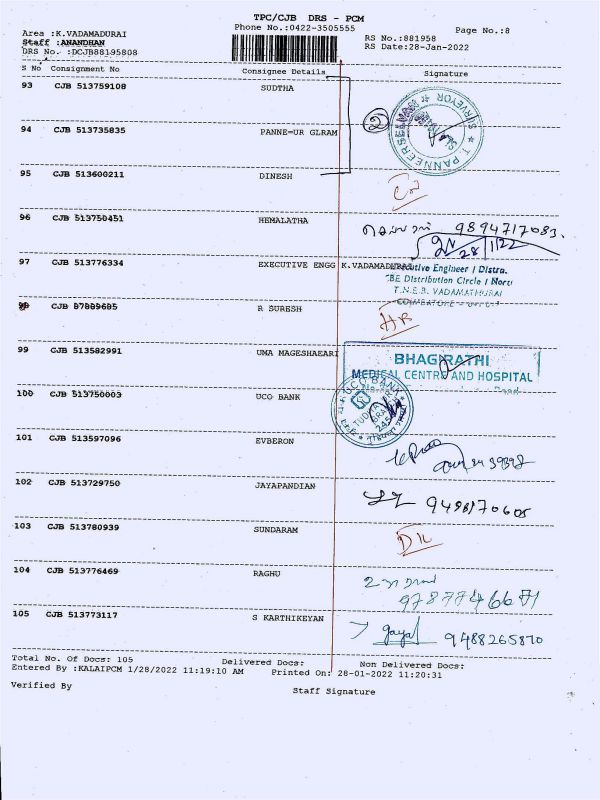 TPC/CJB DRS - PCM
Phone No.:0422-3505555
Page No.:8
Area :K.VADAMADURAI
Staff :ANANDHAN
DRS No. :DCJB88195808
RS No.:881958
RS Date:28-Jan-2022
S No Consignment No Consignee Details Signature
93 CJB 513759108 SUDTHA
T. PANNEERSELVAM ★ SURVEYOR ★
2
94 CJB 513735835 PANNE=UR GLRAM
95 CJB 513600211 DINESH
96 CJB 513750451 HEMALATHA 9894717083.
28/1/22
97 CJB 513776334 EXECUTIVE ENGG K.VADAMADURAI
Executive Engineer / Distri.
BE Distribution Circle / North
T.N.E.B. VADAMATHURAI
COIMBATORE
98 CJB 87889685 R SURESH
99 CJB 513582991 UMA MAGESHAEARI
BHAGIRATHI
MEDICAL CENTRE AND HOSPITAL
100 CJB 513750003 UCO BANK
UCO BANK
101 CJB 513597096 EVBERON
102 CJB 513729750 JAYAPANDIAN 9498170605
103 CJB 513780939 SUNDARAM
DK
104 CJB 513776469 RAGHU
9787746671
105 CJB 513773117 S KARTHIKEYAN
9488265870
Total No. Of Docs: 105 Delivered Docs: Non Delivered Docs:
Entered By :KALAIPCM 1/28/2022 11:19:10 AM Printed On: 28-01-2022 11:20:31
Verified By
Staff Signature